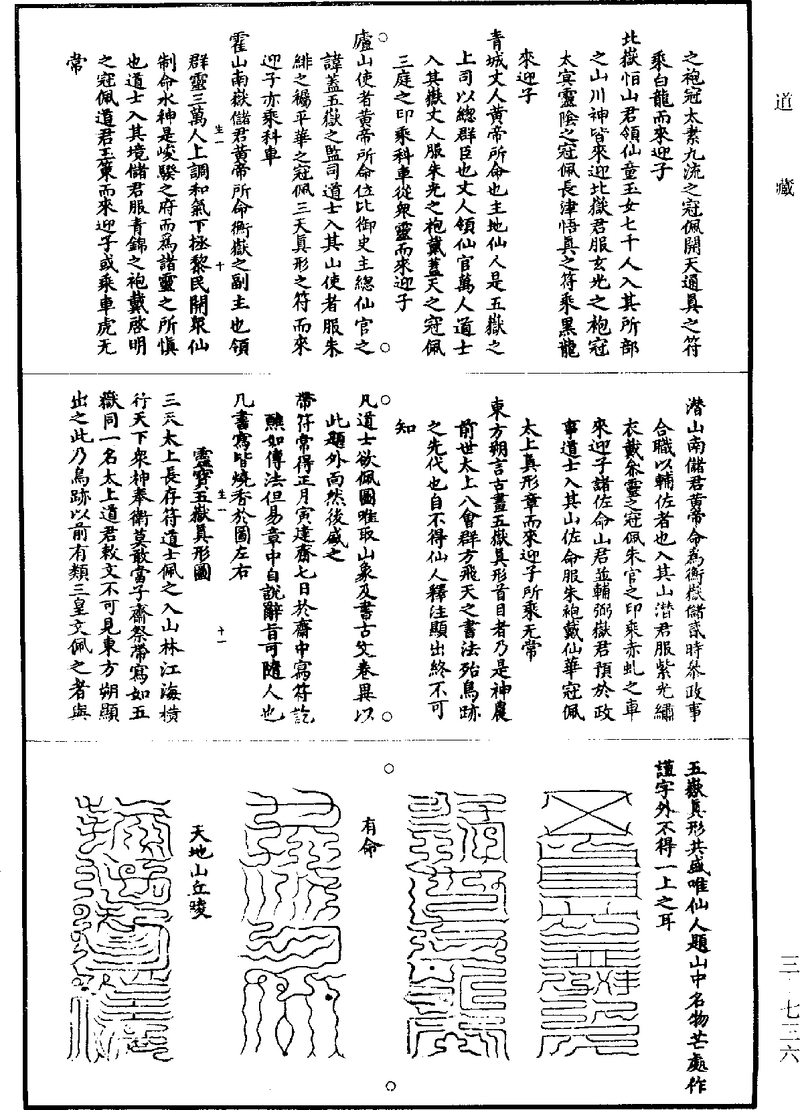 道藏
三·七三六
之袍冠太素九流之冠佩開天通真之符
乘白龍而來迎子
北嶽恒山君領仙童玉女七千人入其所部
之山川神皆來迎北嶽君服玄光之袍冠
太冥靈陰之冠佩長津悟真之符乘黑龍
來迎子
青城丈人黃帝所命也主地仙人是五嶽之
上司以總群臣也丈人領仙官萬人道士
入其嶽丈人服朱光之袍戴蓋天之冠佩
三庭之印乘科車從衆靈而來迎子
廬山使者黃帝所命位比御史主總仙官之
諱蓋五嶽之監司道士入其山使者服朱
緋之袍平華之冠佩三天真形之符而來
迎子亦乘科車
霍山南嶽儲君黃帝所命衡嶽之副主也領
群靈三萬人上調和氣下拯黎民開衆仙
制命水神是峻險之府而爲諸靈之所慎
也道士入其境儲君服青錦之袍戴啓明
之冠佩道君玉策而來迎子或乘車虎无
常
潛山南儲君黃帝命爲衡嶽儲貳時參政事
合職以輔佐者也入其山潛君服紫光繡
衣戴參靈之冠佩朱官之印乘赤虬之車
來迎子諸佐命山君並輔弼嶽君預於政
事道士入其山佐命服朱袍戴仙華冠佩
太上真形章而來迎子所乘无常
東方朔言古畫五嶽真形首目者乃是神農
前世太上八會群方飛天之書法殆鳥跡
之先代也自不得仙人釋注顯出終不可
知
凡道士欲佩圖唯取山象及書古文卷異以
此題外而然後威之
帶符常得正月寅建齋七日於齋中寫符訖
醮如傳法但易章中自說辭旨可隨人也
凡書寫皆燒香於圖左右
靈寶五嶽真形圖
三天太上長存符道士佩之入山林江海橫
行天下衆神奉衛莫敢當子齋祭帶寫如五
嶽同一名太上道君敕文不可見東方朔顯
出之此乃鳥跡以前有類三皇文佩之者與
五嶽真形共盛唯仙人題山中名物芒處作
謹字外不得一上之耳
有命
天地山丘陵